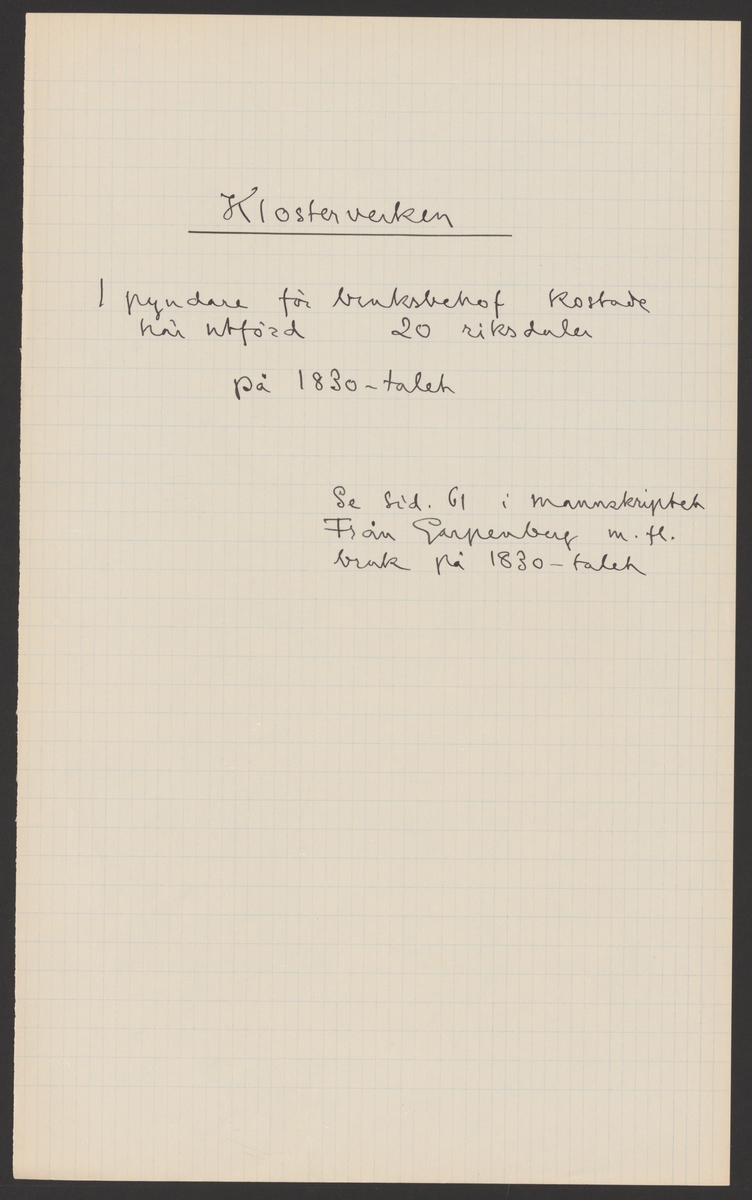 Klosterverken
1 pyndare för bruksbehof kostade
här utförd 20 riksdaler
på 1830-talet
Se sid. 61 i mannskriptet
Från Garpenberg m. fl.
bruk på 1830-talet